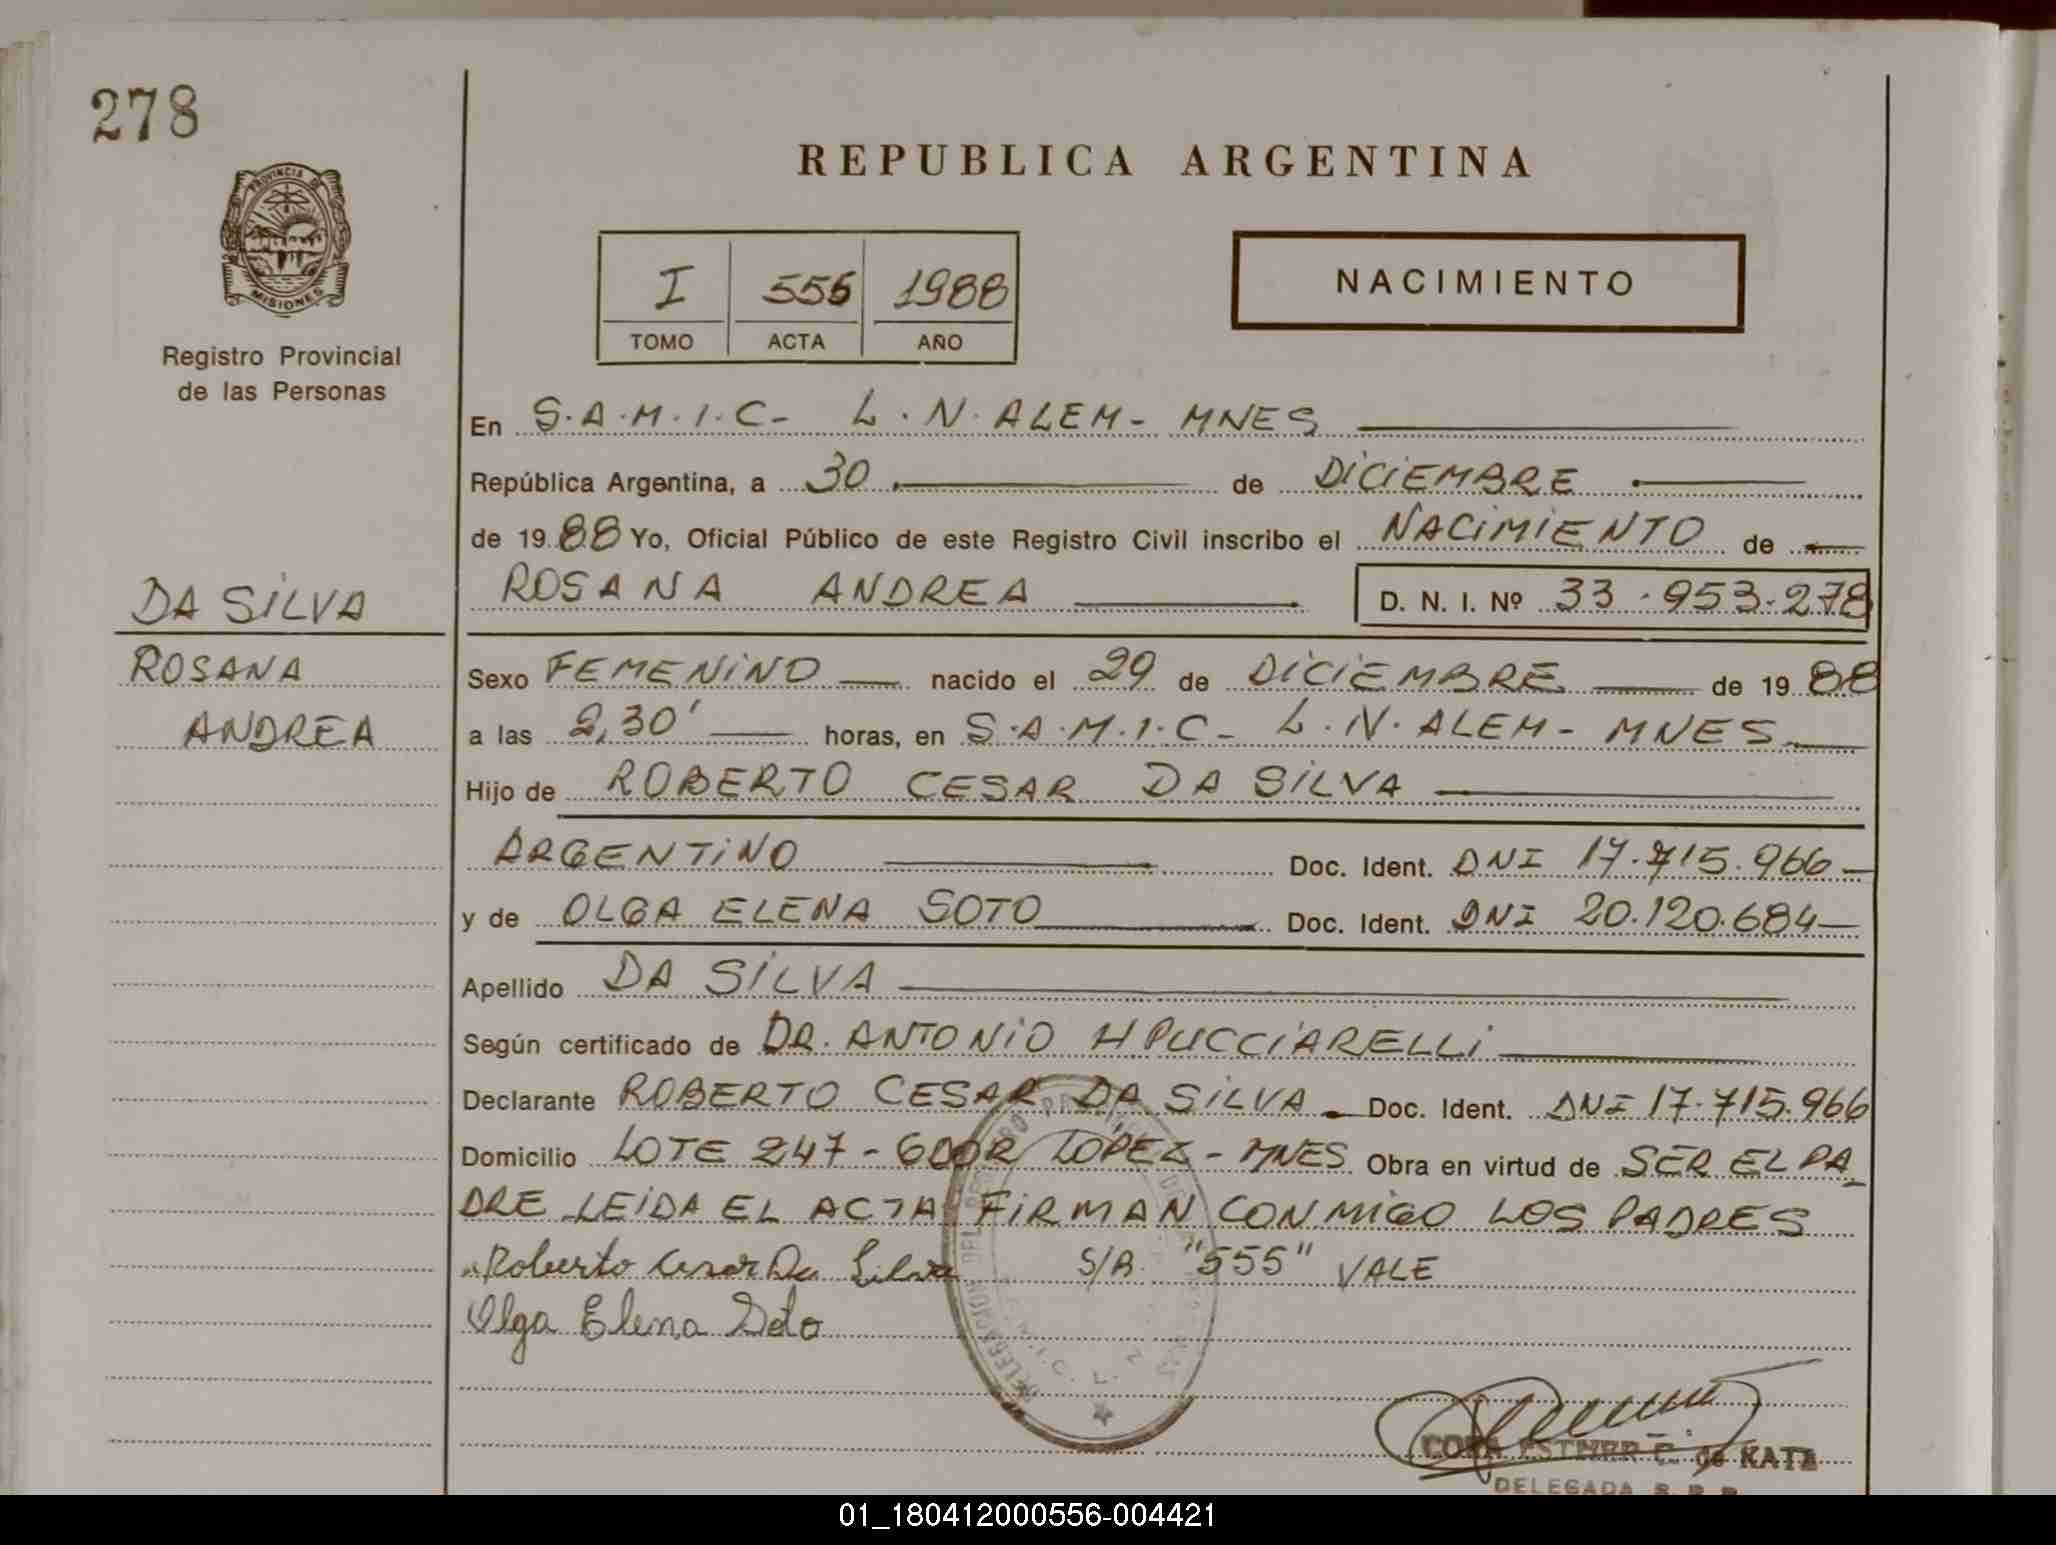 278
PROVINCIA DE
MISIONES
Registro Provincial
de las Personas
DA SILVA
ROSANA
ANDREA
REPUBLICA ARGENTINA
I 555 1988
TOMO ACTA AÑO
NACIMIENTO
En S.A.M.I.C- L.N.ALEM- MNES
República Argentina, a 30 de DICIEMBRE
de 1988 Yo, Oficial Público de este Registro Civil inscribo el NACIMIENTO de
ROSANA ANDREA D. N. I. Nº 33.953.278
Sexo FEMENINO nacido el 29 de DICIEMBRE de 1988
a las 2,30' horas, en S.A.M.I.C- L.N.ALEM- MNES
Hijo de ROBERTO CESAR DA SILVA
ARGENTINO Doc. Ident. DNI 17.715.966
y de OLGA ELENA SOTO Doc. Ident. DNI 20.120.684
Apellido DA SILVA
Según certificado de DR. ANTONIO H PUCCIARELLI
Declarante ROBERTO CESAR DA SILVA Doc. Ident. DNI 17.715.966
Domicilio LOTE 247 - LOPEZ - MNES Obra en virtud de SER EL PA
DRE LEIDA EL ACTA FIRMAN CONMIGO LOS PADRES
Roberto Cesar Da Silva S/R "555" VALE
Olga Elena Soto
ESTHER C. de KATZ
DELEGADA
01_180412000556-004421